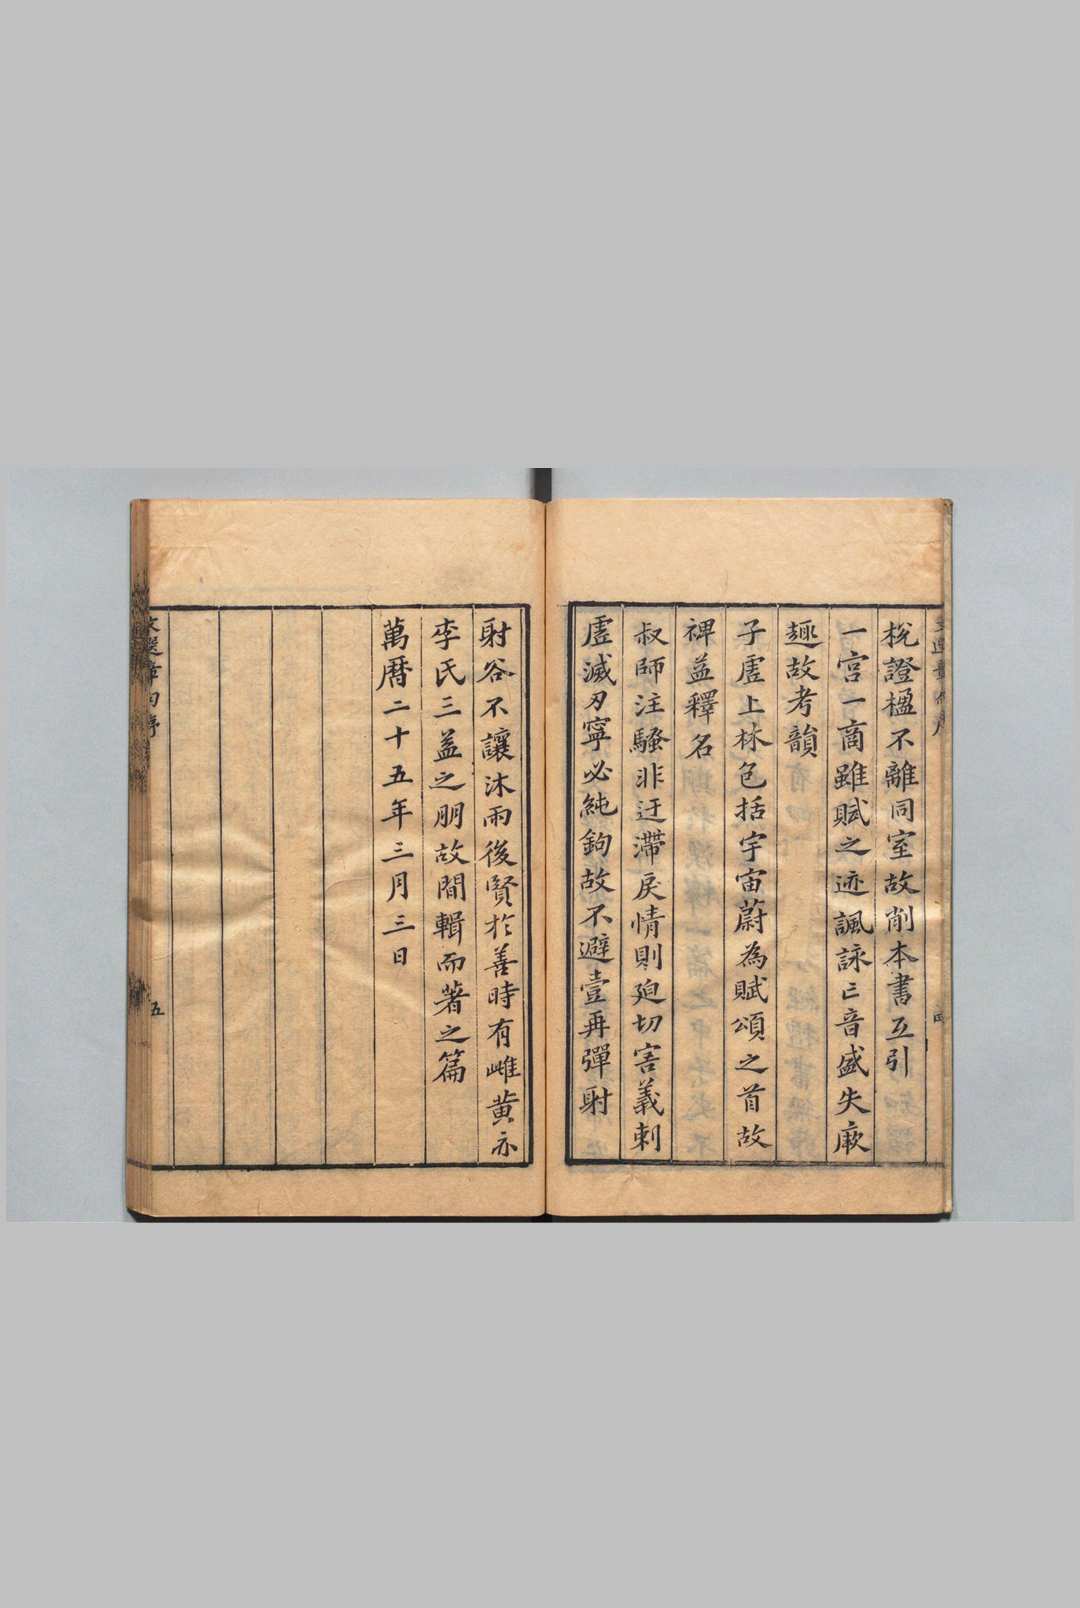 棁證楹不離同室故削本書互引
一宮一商雖賦之迹諷詠亡音盛失厥
趣故考韻
子虛上林包括宇宙蔚為賦頌之首故
裨益釋名
叔師注騷非迂滯戾情則廹切害義刺
虛滅刃寧必純鉤故不避壹再彈射
四
射谷不讓沐雨後賢於善時有雌黃亦
李氏三益之朋故間輯而著之篇
萬曆二十五年三月三日
文選章句序
五